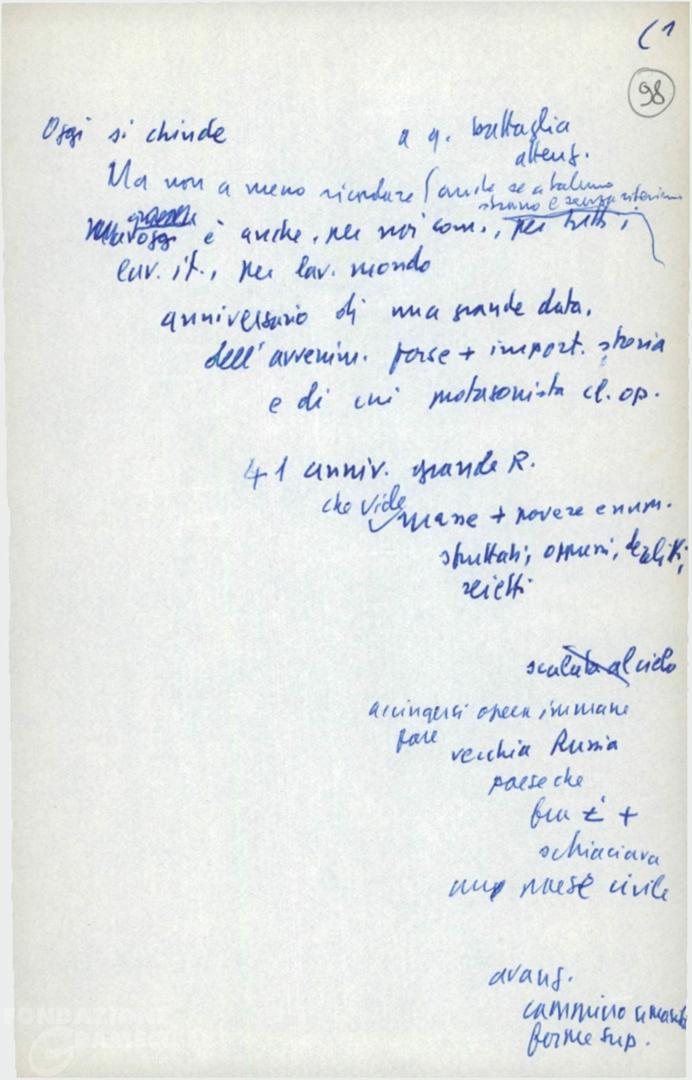 (1
98
Oggi si chiude
a q. battaglia
atteng.
Ma non a meno ricordare (anche se a taluno
strano e senza
oggi è anche, per noi com., per tutti,
lav. it., per lav. mondo
anniversario di una grande data,
dell'avvenim. forse + import. storia
e di cui protagonista cl. op.
41 anniv. grande R.
che vide
masse + povere e num.
sfruttati, oppressi,
reietti
scalata al cielo
accingersi opera immane
fare
vecchia Russia
paese che
fra i +
schiaciava
un paese civile
avang.
cammino umanità
forme sup.
FONDAZIONE
GRAMSCI